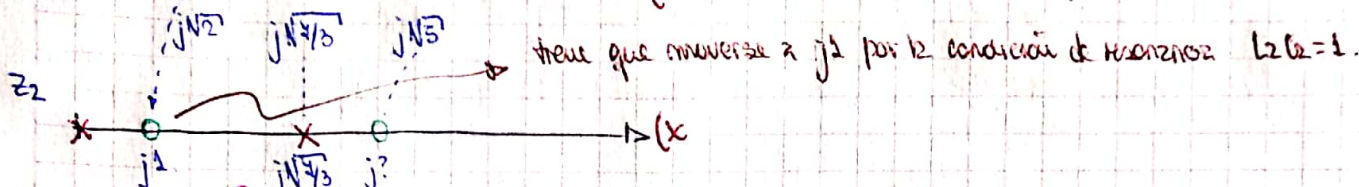 j√2 j√7/3 j√5 tiene que moverse a j1 por la condición de resonancia L2C2=1.
Z2
(x
j1 j√7/3 j?